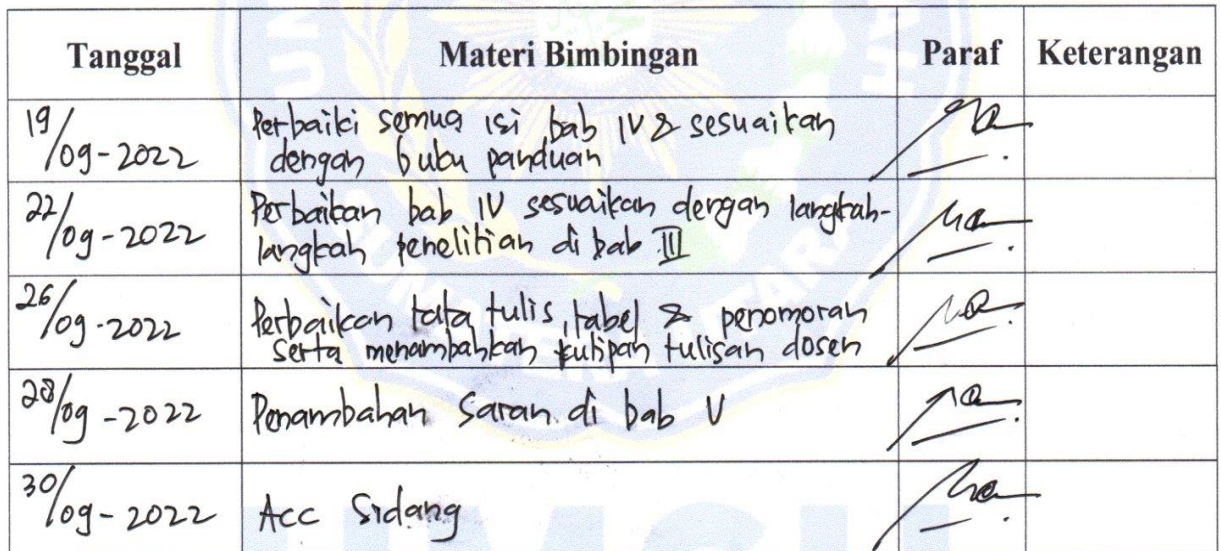 Tanggal Materi Bimbingan Paraf Keterangan
19/09-2022 Perbaiki semua isi bab IV & sesuaikan
dengan buku panduan
22/09-2022 Perbaikan bab IV sesuaikan dengan langkah-
langkah penelitian di bab III
26/09-2022 Perbaikan tata tulis, tabel & penomoran
serta menambahkan kutipan tulisan dosen
28/09-2022 Penambahan saran di bab V
30/09-2022 Acc Sidang
UMSU
SUMATERA UTARA